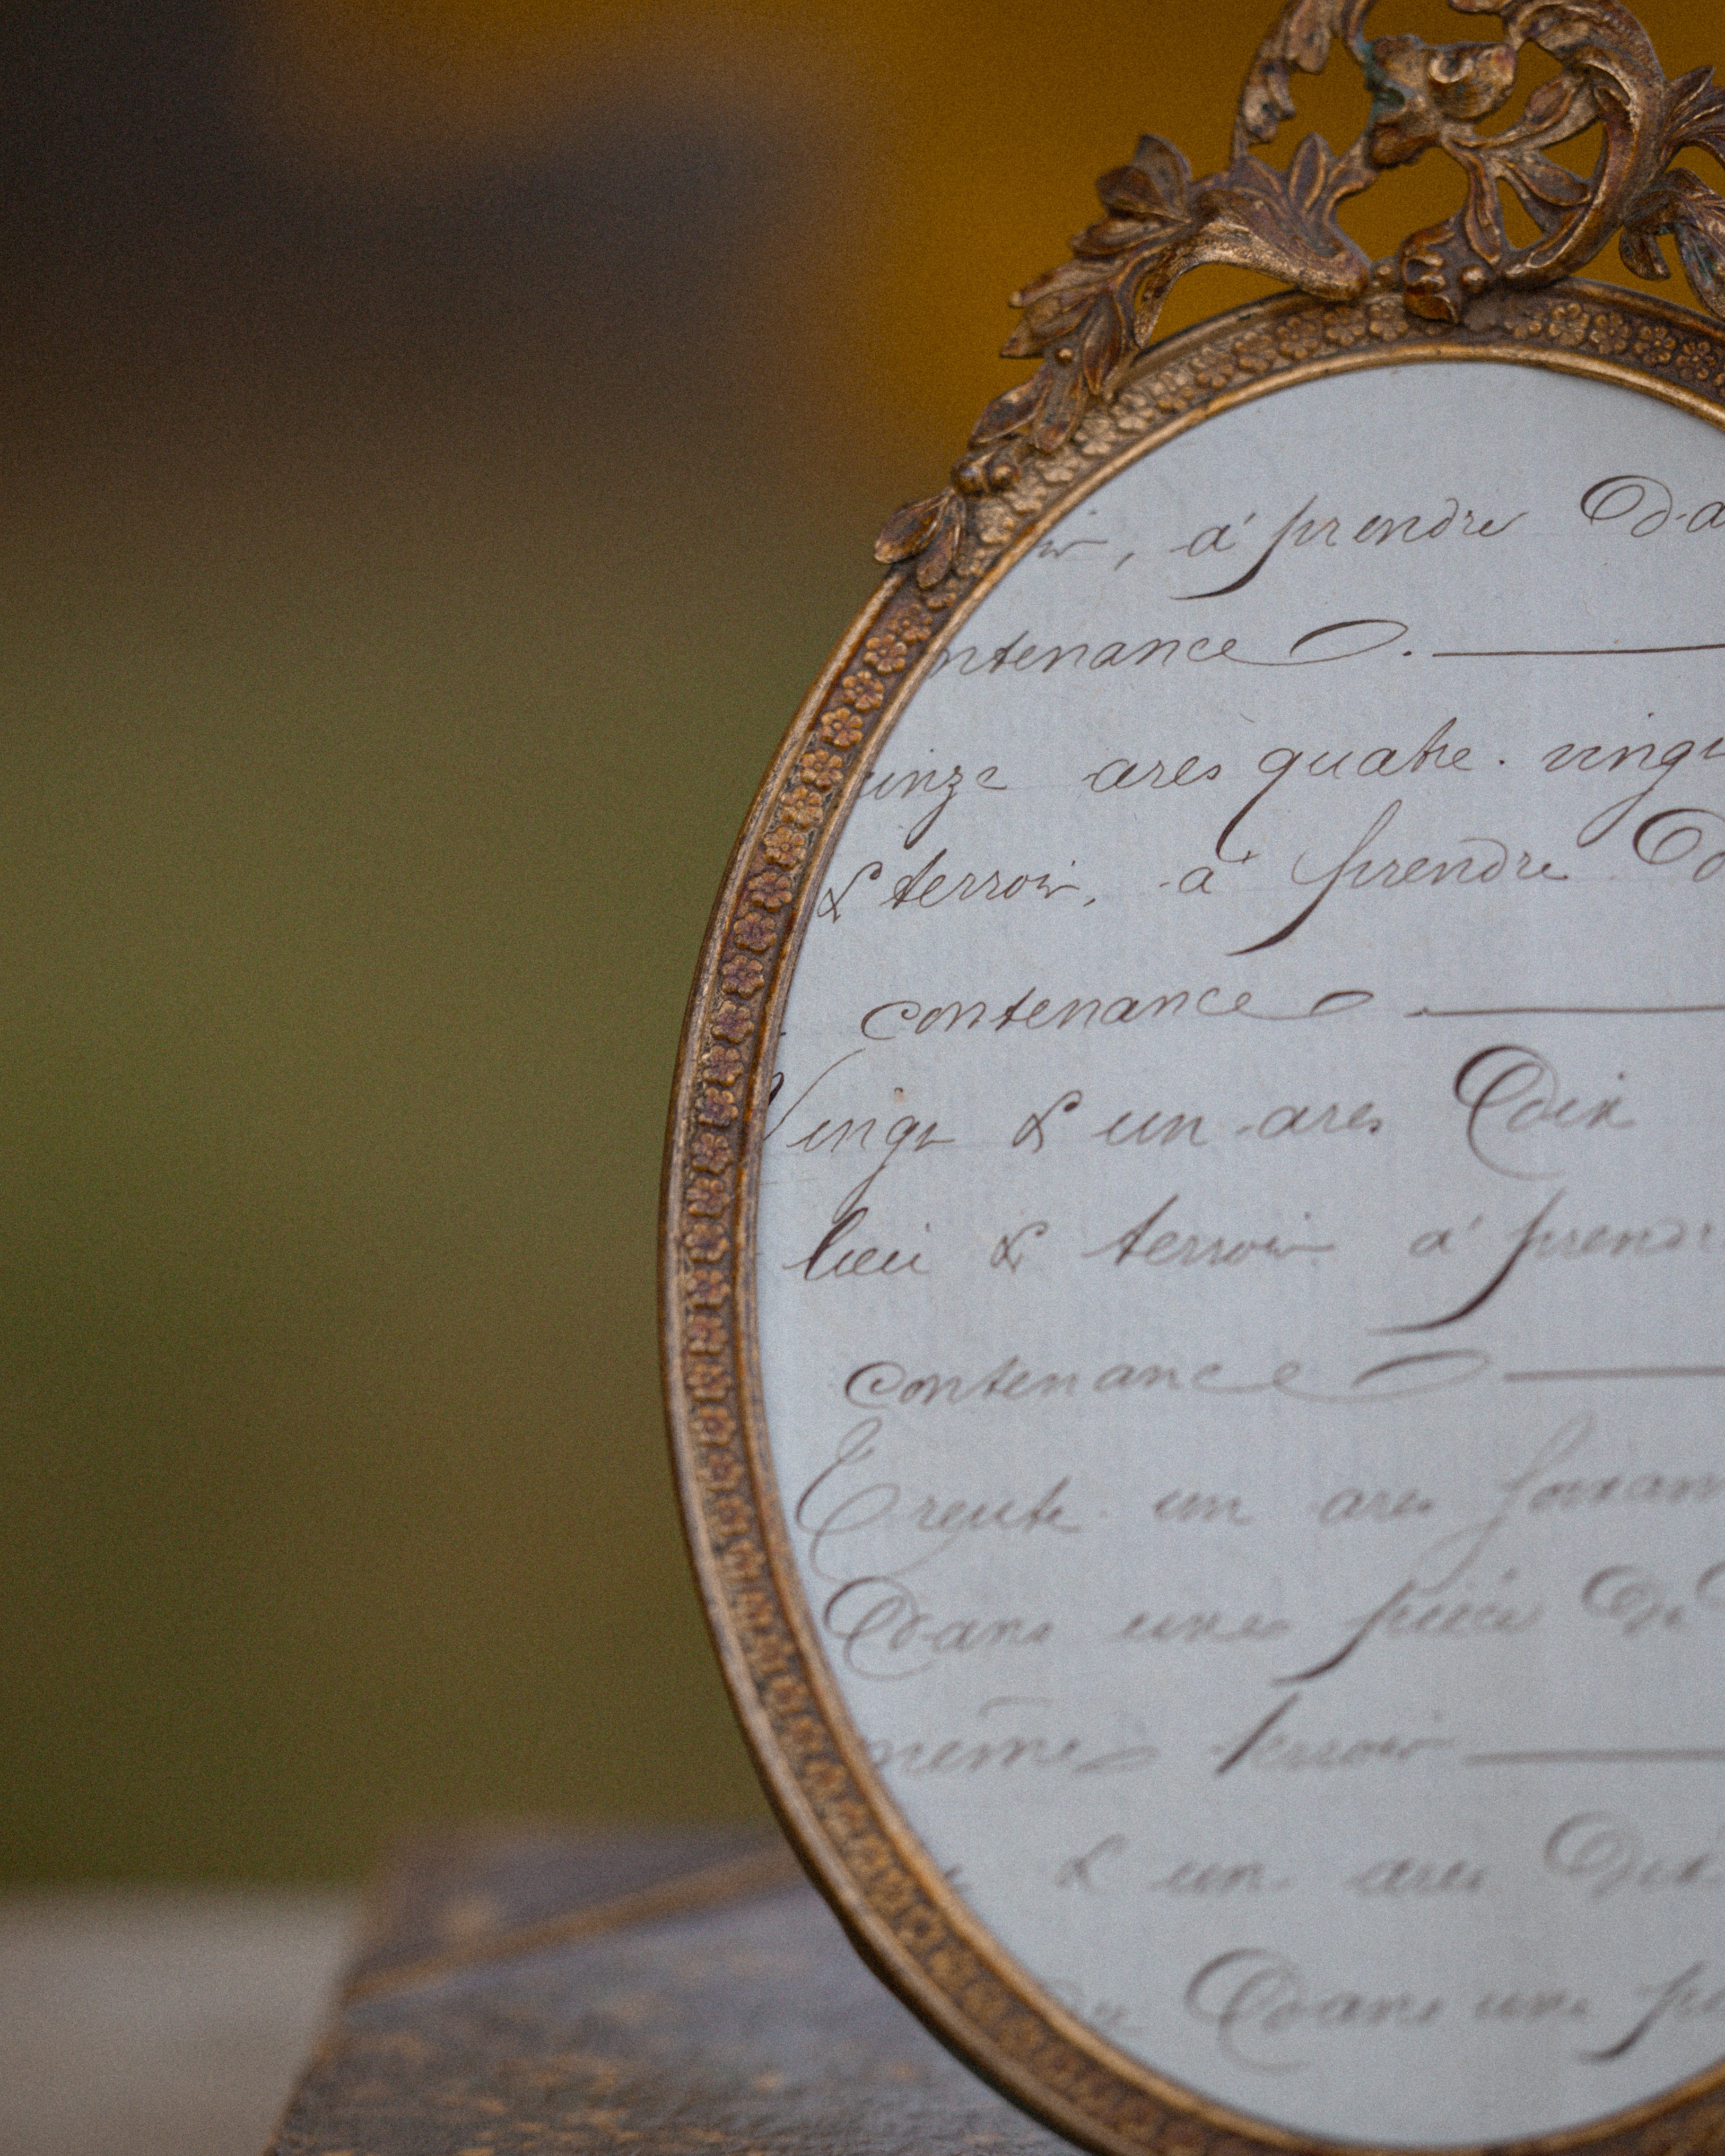 ir, à prendre Da
ntenance .
uinze ares quatre-vingt
& terroir, à prendre D
contenance .
Vingt & un ares Dix
lieu & terroir à prendr
contenance
Trente un ares soixan
Dans une pièce De
même terroir
& un ares Dix
Dans une pi